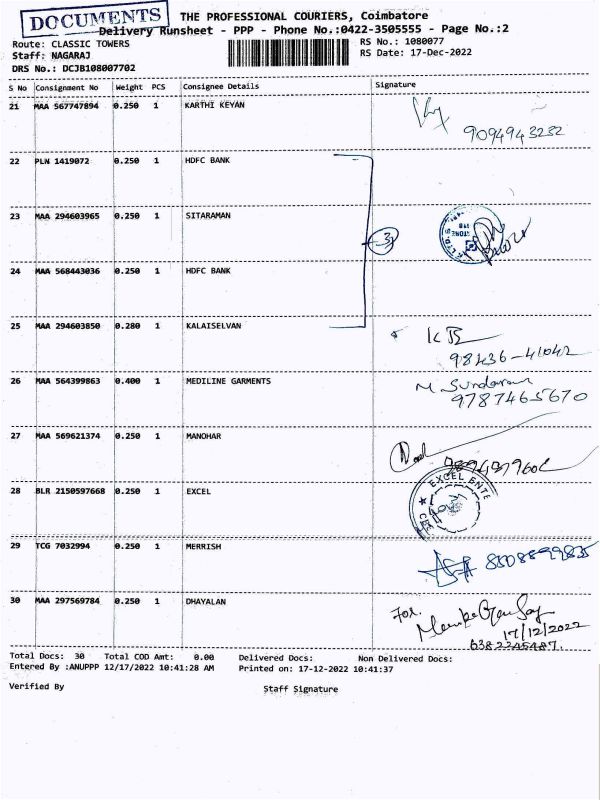 DOCUMENTS
THE PROFESSIONAL COURIERS, Coimbatore
Delivery Runsheet - PPP - Phone No.:0422-3505555 - Page No.:2
Route: CLASSIC TOWERS
RS No.: 1080077
Staff: NAGARAJ
RS Date: 17-Dec-2022
DRS No.: DCJB108007702
S No Consignment No Weight PCS Consignee Details Signature
21 MAA 567747894 0.250 1 KARTHI KEYAN
9094943232
22 PLN 1419072 0.250 1 HDFC BANK
23 MAA 294603965 0.250 1 SITARAMAN
3
24 MAA 568443036 0.250 1 HDFC BANK
25 MAA 294603850 0.280 1 KALAISELVAN
98436-41042
26 MAA 564399863 0.400 1 MEDILINE GARMENTS
M. Sundaram
9787465670
27 MAA 569621374 0.250 1 MANOHAR
28 BLR 2150597668 0.250 1 EXCEL
EXCEL ENTE
29 TCG 7032994 0.250 1 MERRISH
8508899835
30 MAA 297569784 0.250 1 DHAYALAN
For.
17/12/2022
Total Docs: 30 Total COD Amt: 0.00 Delivered Docs: Non Delivered Docs:
Entered By :ANUPPP 12/17/2022 10:41:28 AM Printed on: 17-12-2022 10:41:37
Verified By
Staff Signature